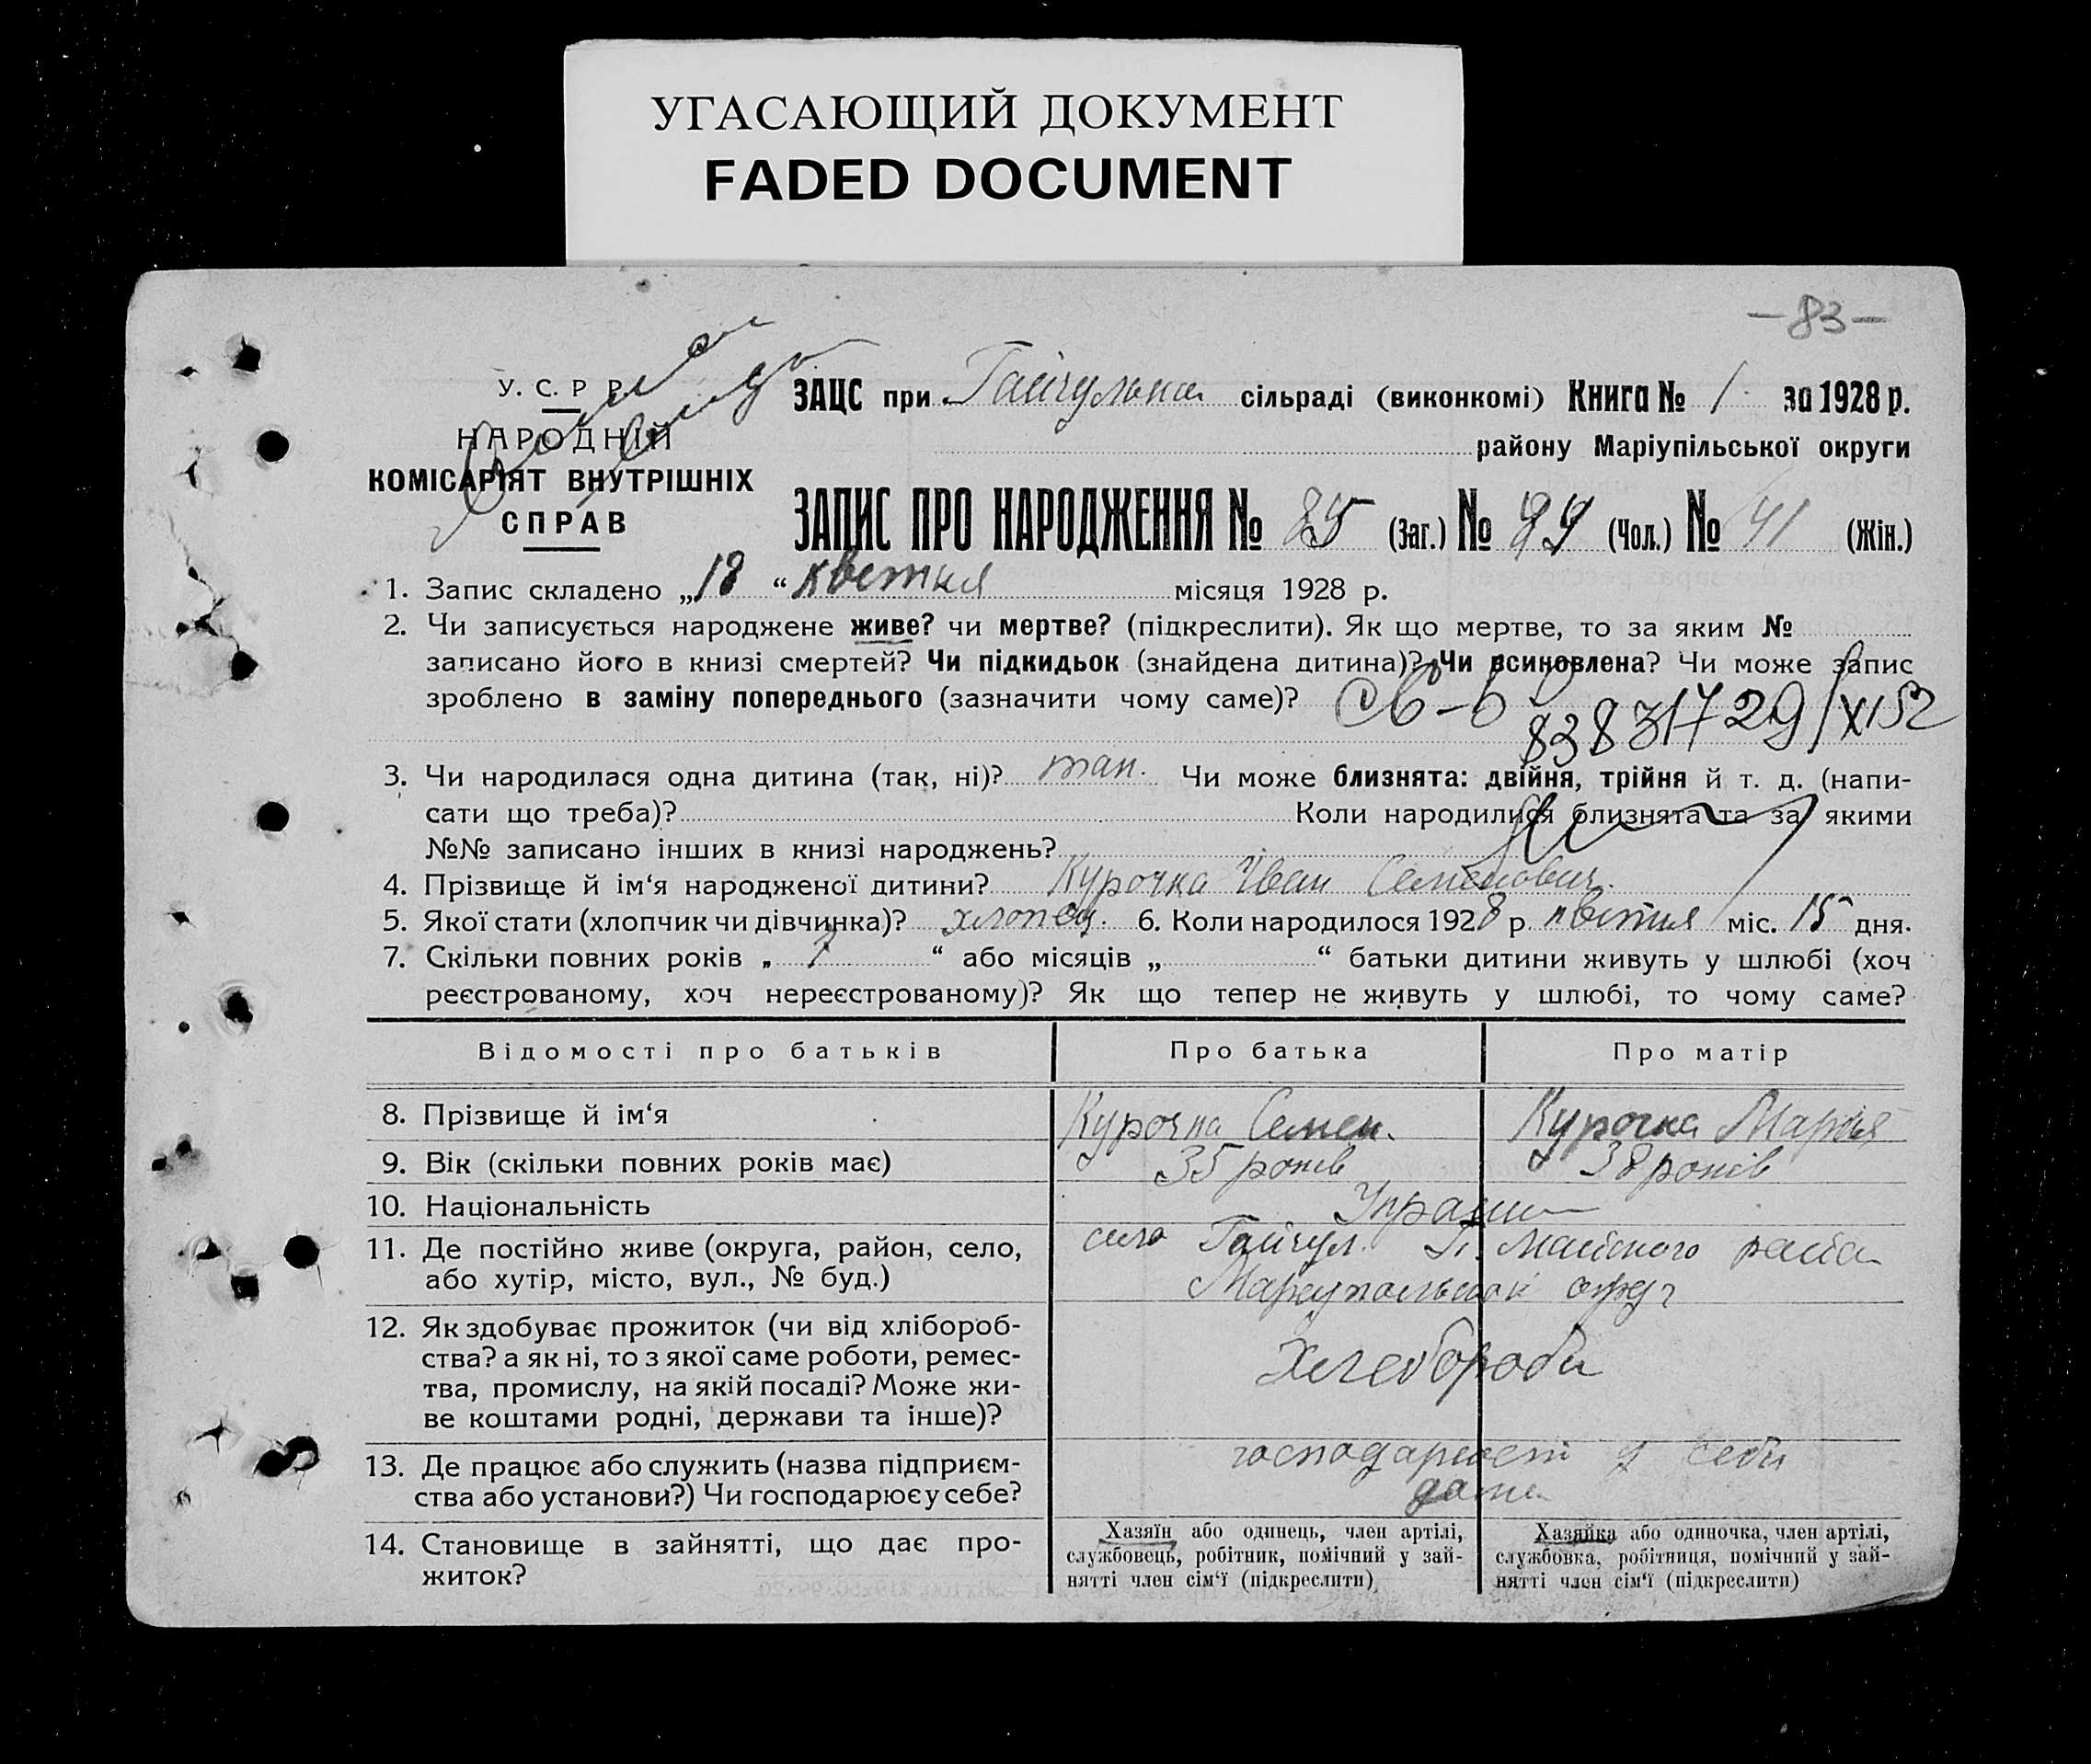 УГАСАЮЩИЙ ДОКУМЕНТ
FADED DOCUMENT
—83—
У. С. Р Р.
НАРОДНІЙ
КОМІСАРІЯТ ВНУТРІШНІХ
СПРАВ
ЗАЦС при сільраді (виконкомі) Книга № 1 за 1928 р.
району Маріупільської округи
ЗАПИС ПРО НАРОДЖЕННЯ № 85 (Заг.) № (Чол.) № 41 (Жін.)
1. Запис складено „18“ квітня місяця 1928 р.
2. Чи записується народжене живе? чи мертве? (підкреслити). Як що мертве, то за яким №
записано його в книзі смертей? Чи підкидьок (знайдена дитина)? Чи всиновлена? Чи може запис
зроблено в заміну попереднього (зазначити чому саме)?
3. Чи народилася одна дитина (так, ні)? так. Чи може близнята: двійня, трійня й т. д. (напи-
сати що треба)? Коли народилися близнята та за якими
№№ записано інших в книзі народжень?
4. Прізвище й ім‘я народженої дитини? Курочка Іван Семенович.
5. Якої стати (хлопчик чи дівчинка)? хлопец. 6. Коли народилося 1928 р. квітня міс. 15 дня.
7. Скільки повних років „ 7 “ або місяців „ “ батьки дитини живуть у шлюбі (хоч
реєстрованому, хоч нереєстрованому)? Як що тепер не живуть у шлюбі, то чому саме?
Відомості про батьків Про батька Про матір
8. Прізвище й ім‘я Курочка Семен. Курочка Мария
9. Вік (скільки повних років має) 35 років 38 років
10. Національність
11. Де постійно живе (округа, район, село, село Гайчул
або хутір, місто, вул., № буд.)
12. Як здобуває прожиток (чи від хлібороб-
ства? а як ні, то з якої саме роботи, ремес-
тва, промислу, на якій посаді? Може жи-
ве коштами родні, держави та інше)?
Хлебороби
13. Де працює або служить (назва підприєм-
ства або установи?) Чи господарює у себе?
14. Становище в зайнятті, що дає про-
житок?
Хазяїн або одинець, член артілі,
службовець, робітник, помічний у зай-
нятті член сім‘ї (підкреслити)
Хазяйка або одиночка, член артілі,
службовка, робітниця, помічний у зай-
нятті член сім‘ї (підкреслити)